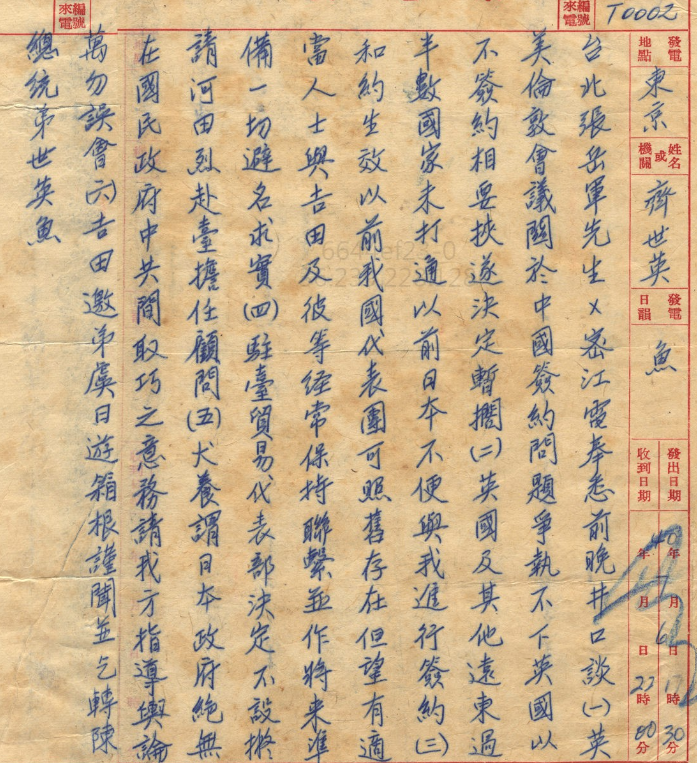 來電編號
來電編號 T0002
發電地點 東京
姓名或機關 齊世英
發電日韻 魚
發出日期 40年 月6日17時30分
收到日期 年 月 日22時00分
台北張岳軍先生×密江電奉悉前晚井口談(一)英
美倫敦會議關於中國簽約問題爭執不下英國以
不簽約相要挾遂決定暫擱(二)英國及其他遠東過
半數國家未打通以前日本不便與我進行簽約(三)
和約生效以前我國代表團可照舊存在但望有適
當人士與吉田及彼等经常保持聯繫並作將来準
備一切避名求實(四)駐臺貿易代表部決定不設擬
請河田烈赴臺擔任顧問(五)犬養謂日本政府絶無
在國民政府中共間取巧之意務請我方指導輿論
萬勿誤會(六)吉田邀弟虞日遊箱根謹聞並乞轉陳
總統弟世英魚